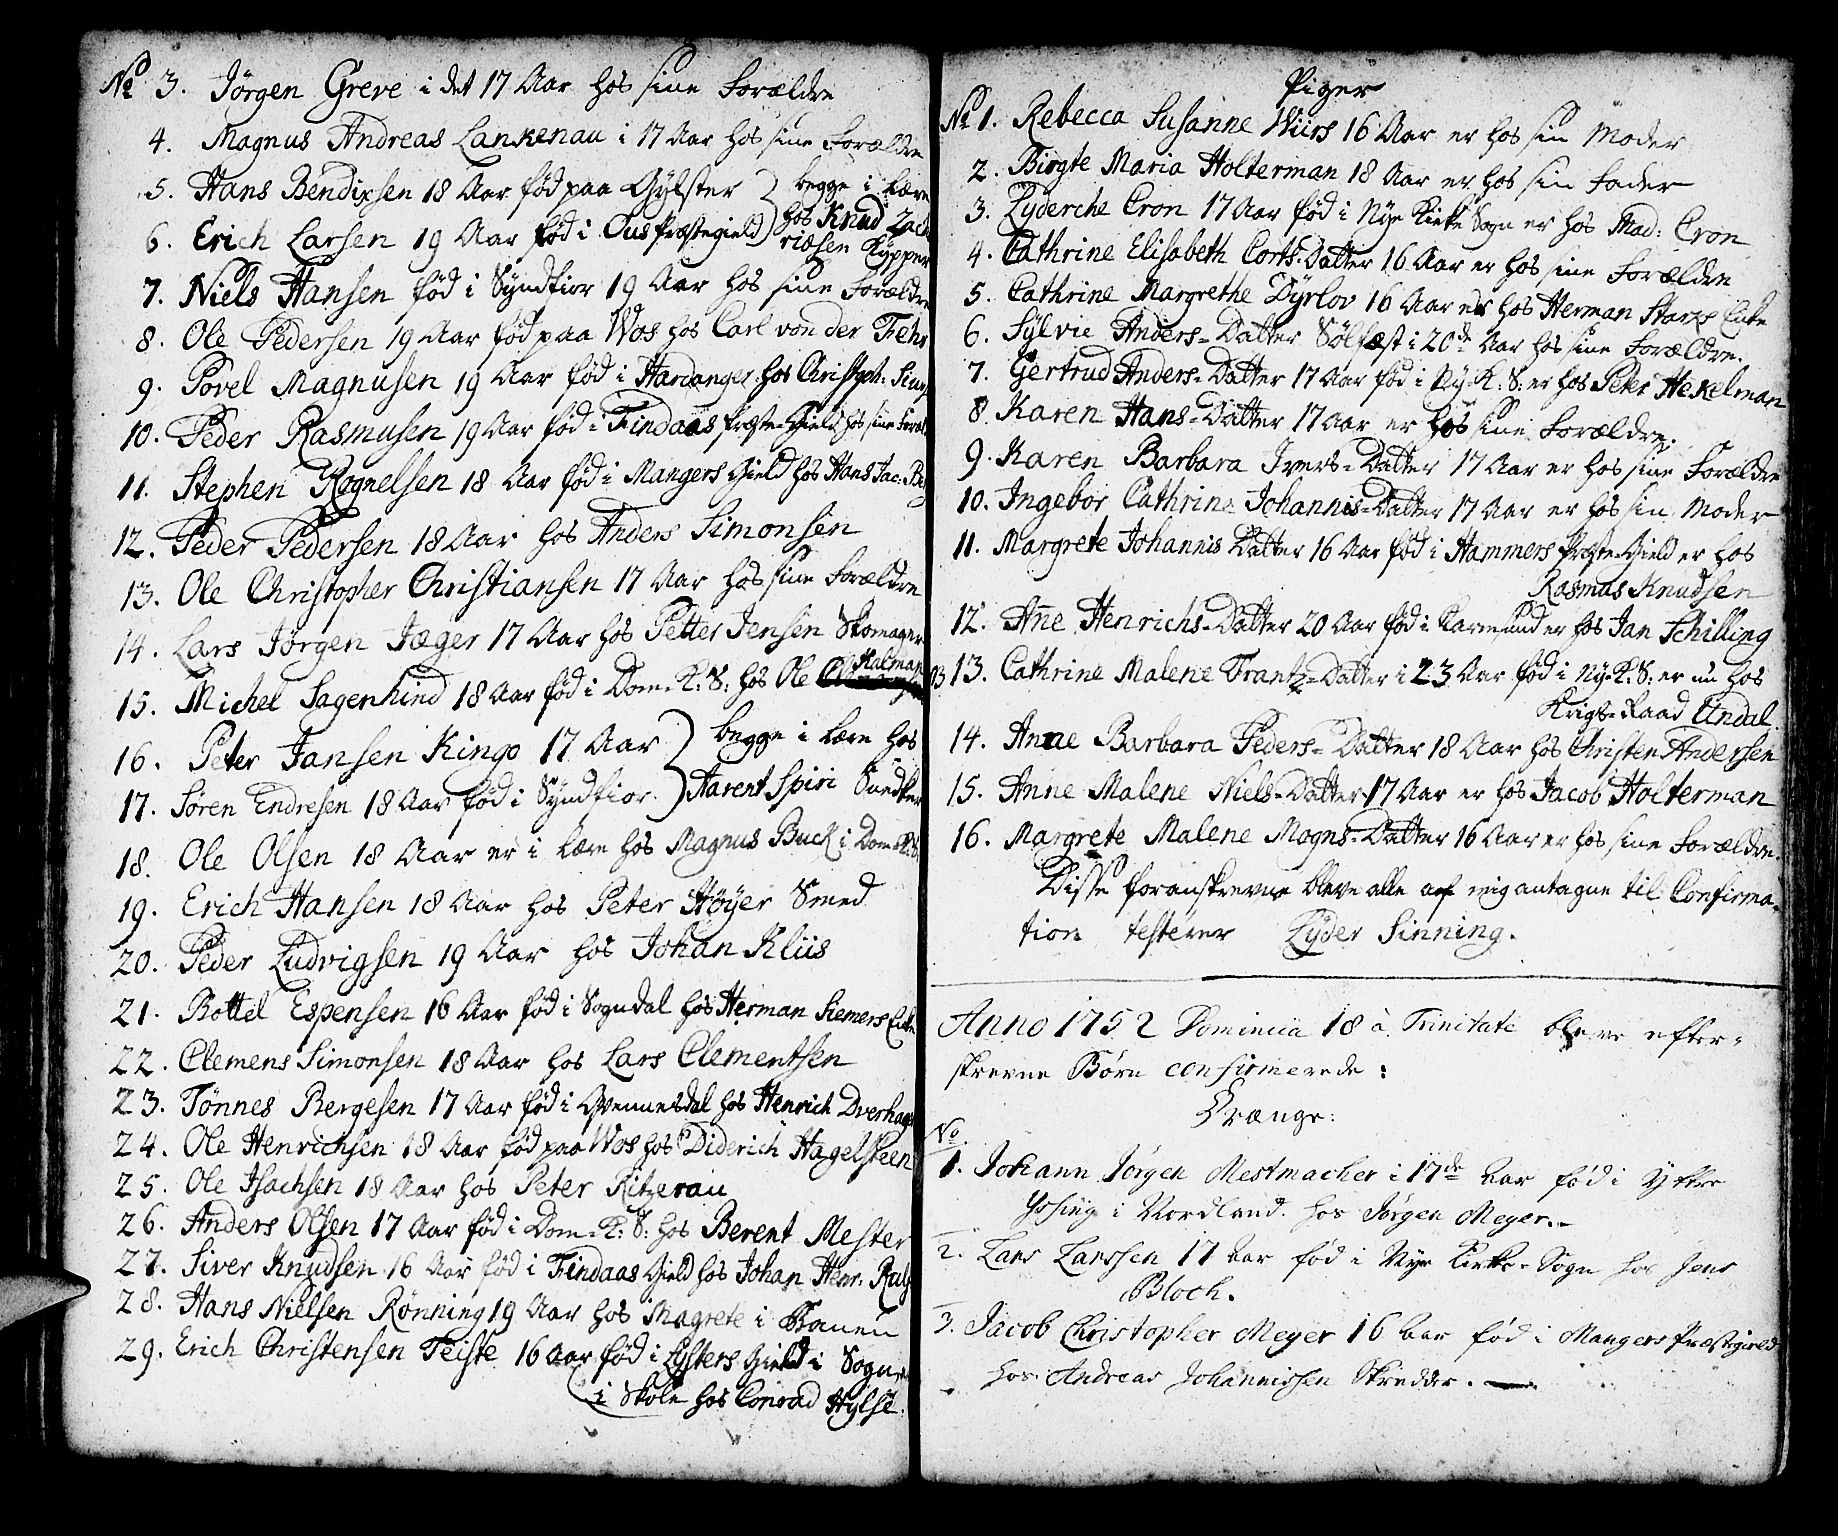 No 3. Jørgen Greve i det 17 Aar hos sine Forældre
4. Magnus Andreas Lankenau i 17 Aar hos sine Forældre
5. Hans Bendixsen 18 Aar fød paa Gylster } begge i lære
6. Erich Larsen 19 Aar fød i Ous Præstegield } hos Knud Zach
riæsen Kypper
7. Niels Hansen fød i Syndfior 19 Aar hos sine Forældre
8. Ole Pedersen 19 Aar fød paa Wos hos Carl von der Fehr
9. Povel Magnusen 19 Aar fød i Hardanger hos Christoph:
10. Peder Rasmusen 19 Aar fød i Findaas Præste-Gield hos sine Foræl
11. Stephen Rognelsen 18 Aar fød i Mangers Gield hos Hans Jac:
12. Peder Pedersen 18 Aar hos Anders Simonsen
13. Ole Christopher Christiansen 17 Aar hos sine Forældre
14. Lars Jørgen Jæger 17 Aar hos Petter Jensen Skomager
Kalman
15. Michel Sagenhind 18 Aar fød i Dom-K: S: hos Ole
16. Peter Jansen Kingo 17 Aar } begge i lære hos
17. Søren Endresen 18 Aar fød i Syndfior } Aarent Spiri Snedker
18. Ole Olsen 18 Aar er i lære hos Magnus Buck i Dom K: S
19. Erich Hansen 18 Aar hos Peter Høyer Smed
20. Peder Ludvigsen 19 Aar hos Johan Kliis
21. Bottel Espensen 16 Aar fød i Sogndal hos Herman Siemers Enke
22. Clemens Simonsen 18 Aar hos Lars Clementsen
23. Tønnes Bergesen 17 Aar fød i Qvennesdal hos Henrich Dverhagen
24. Ole Henrichsen 18 Aar fød paa Wos hos Diderich Hagelsteen
25. Ole Isachsen 18 Aar hos Peter Ritzerau
26. Anders Olsen 17 Aar fød i Dom-K: S: hos Berent Mester
27. Siver Knudsen 16 Aar fød i Findaas Gield hos Johan Henr:
28. Hans Nielsen Rønning 19 Aar hos Magrete i Kronen
29. Erich Christensen Teiste 16 Aar fød i Lysters Gield i Sogn,
i Skole hos Conrad Hylse.
Piger
No 1. Rebecca Susanne Wiirs 16 Aar er hos sin Moder
2. Birgte Maria Holterman 18 Aar er hos sin Fader
3. Lyderche Cron 17 Aar fød i Nye Kirke Sogn er hos Mad: Cron
4. Cathrine Elisabeth Corts-Datter 16 Aar er hos sine Forældre
5. Cathrine Margrethe Dyrlov 16 Aar er hos Herman Starps Enke
6. Sylvie Anders-Datter Sølfæst i 20de Aar hos sine Forældre.
7. Gertrud Anders-Datter 17 Aar fød i Ny-K: S: er hos Peter Hekelman
8. Karen Hans-Datter 17 Aar er hos sine Forældre.
9. Karen Barbara Ivers-Datter 17 Aar er hos sine Forældre
10. Ingebor Cathrine Johannis-Datter 17 Aar er hos sin Moder
11. Margrete Johannis Datter 16 Aar fød i Hammers Præste-Gield er hos
Rasmus Knudsen
12. Añe Henrichs-Datter 20 Aar fød i Karmsund er hos Jan Schilling
13. Cathrine Malene Frantz-Datter i 23 Aar fød i Ny-K: S: er nu hos
Krigs-Raad Undal.
14. Anne Barbara Peders-Datter 18 Aar hos Christen Andersen
15. Anne Malene Niels-Datter 17 Aar er hos Jacob Holterman
16. Margrete Malene Mogns-Datter 16 Aar er hos sine Forældre.
Disse foranskrevne bleve alle af mig antagne til Confirma-
tion testerer Lyder Sinning.
Anno 1752 Dominica 18 à Trinitate bleve efter-
skrevne Børn confirmerede:
Drænge:
No
1. Johann Jørgen Mestmacher i 17de Aar fød i Yttre
i Nordland. hos Jørgen Meyer.
2. Lars Larssen 17 Aar fød i Nye Kirke-Sogn hos Jens
Bloch.
3. Jacob Christopher Meyer 16 Aar fød i Mangers Præstegield
hos Andreas Johannissen Skredder.